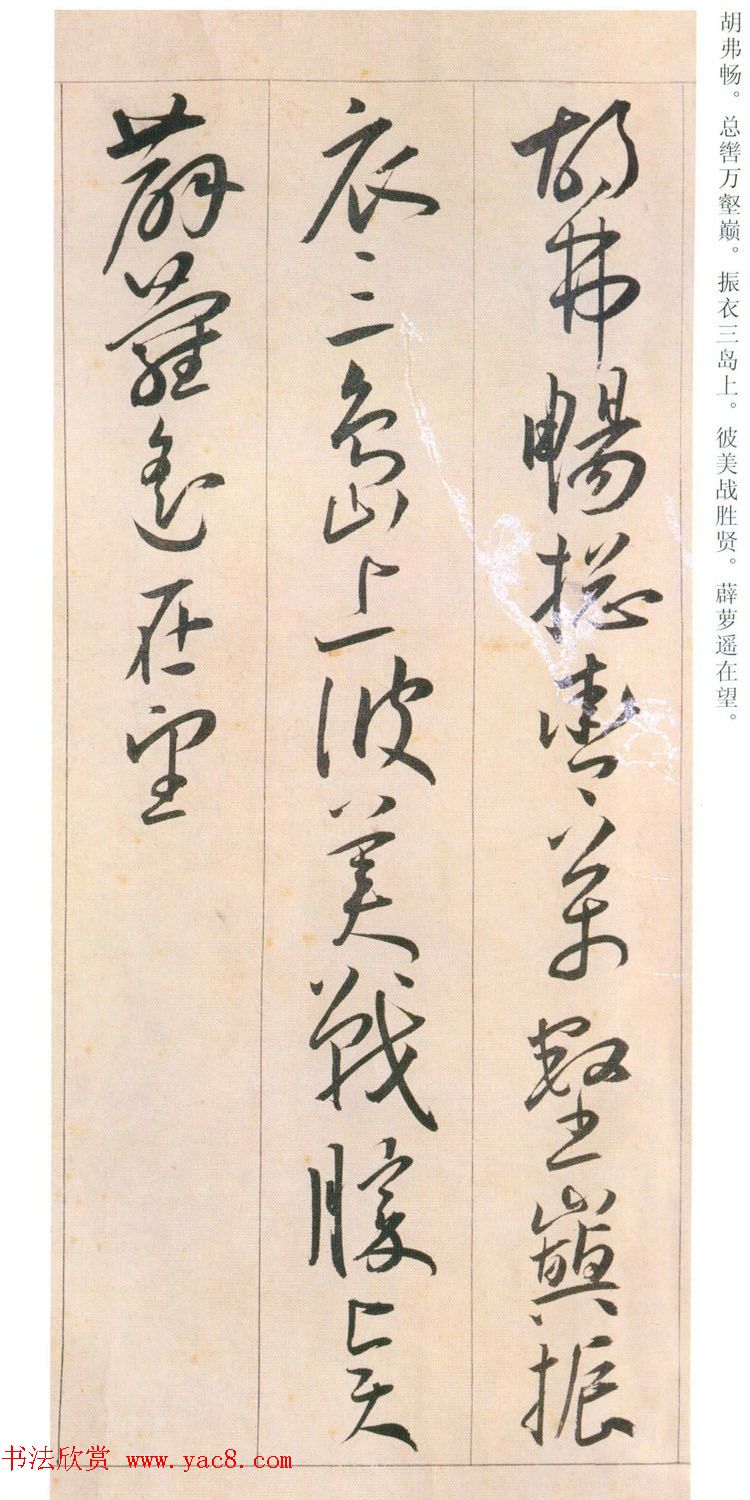 胡弗畅。总辔万壑巅。振衣三岛上。彼美战胜贤。薜萝遥在望。
胡弗暢揔轡万壑巔振
衣三島上彼美戰勝賢
薜蘿遥在望
书法欣赏 www.yac8.com